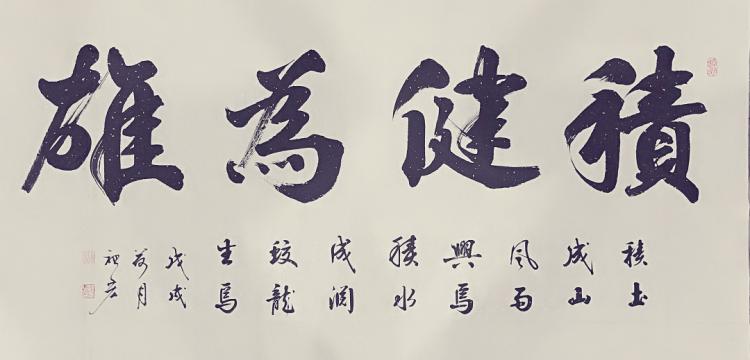 積健為雄
積土
成山
風雨
興焉
積水
成渊
蛟龍
生焉
戊戌
荷月